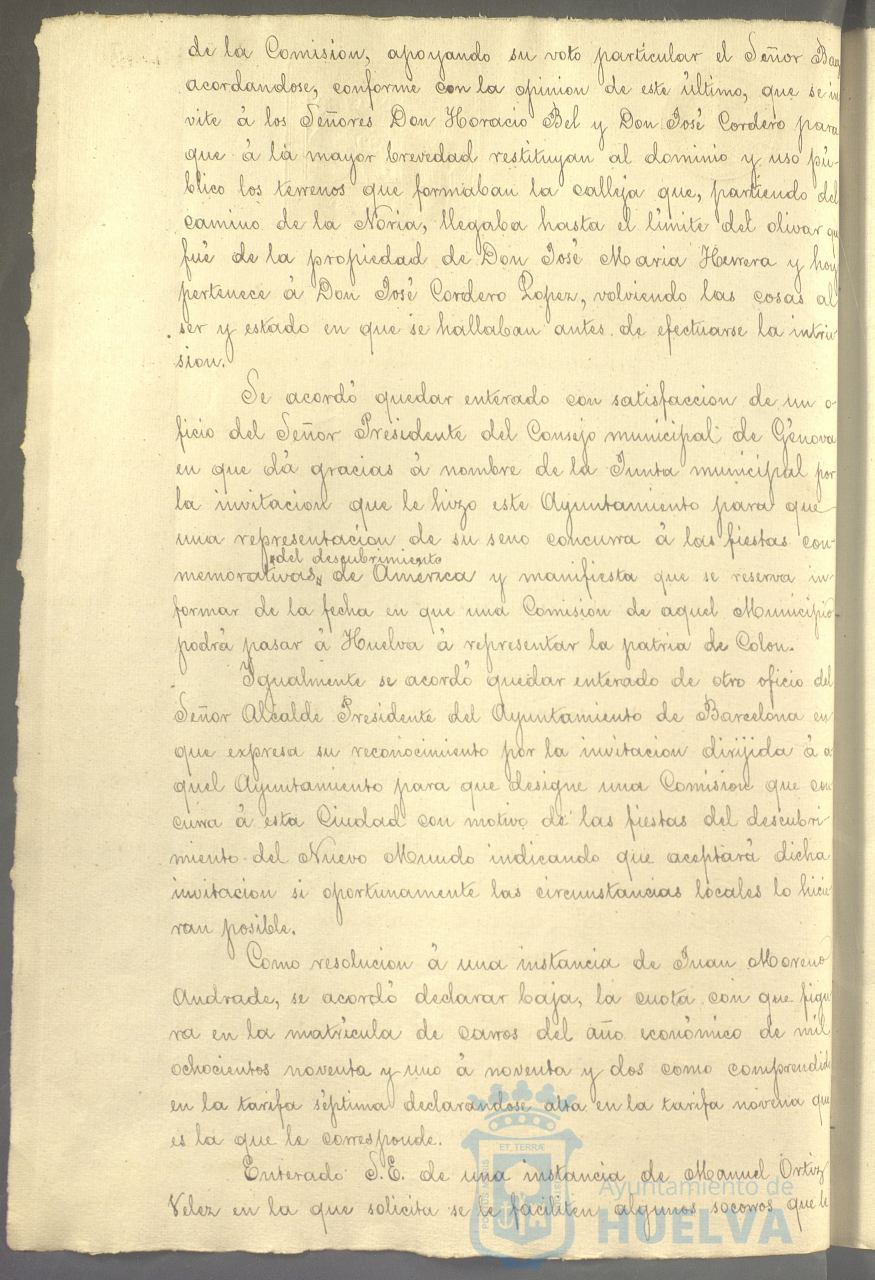 de la Comision, apoyando su voto particular el Señor
acordandose, conforme con la opinion de este último, que se in
vite á los Señores Don Horacio Bel y Don José Cordero para
que á la mayor brevedad restituyan al dominio y uso pú-
blico los terrenos que formaban la calleja que, partiendo del
camino de la Noria, llegaba hasta el límite del olivar que
fué de la propiedad de Don José Maria Herrera y hoy
pertenece á Don José Cordero Lopez, volviendo las cosas al
ser y estado en que se hallaban antes de efectuarse la intru
sion.
Se acordó quedar enterado con satisfaccion de un o-
ficio del Señor Presidente del Consejo municipal de Génova
en que dá gracias á nombre de la Junta municipal por
la invitacion que le hizo este Ayuntamiento para que
una representacion de su seno concurra á las fiestas con-
del descubrimiento
memorativas de America y manifiesta que se reserva in-
formar de la fecha en que una Comision de aquel Municipio
podrá pasar á Huelva á representar la patria de Colon.
Igualmente se acordó quedar enterado de otro oficio del
Señor Alcalde Presidente del Ayuntamiento de Barcelona en
que expresa su reconocimiento por la invitacion dirijida á a-
quel Ayuntamiento para que designe una Comision que con
curra á esta Ciudad con motivo de las fiestas del descubri-
miento del Nuevo Mundo indicando que aceptará dicha
invitacion si oportunamente las circunstancias locales lo hicie
ran posible.
Como resolucion á una instancia de Juan Moreno
Andrade, se acordó declarar baja, la cuota con que figu
ra en la matrícula de carros del año económico de mil
ochocientos noventa y uno á noventa y dos como comprendido
en la tarifa séptima declarandose alta en la tarifa novena que
es la que le corresponde.
Enterado S.E. de una instancia de Manuel Ortiz
Velez en la que solicita se le faciliten algunos socorros que le
ET TERRÆ
Ayuntamiento de
HUELVA